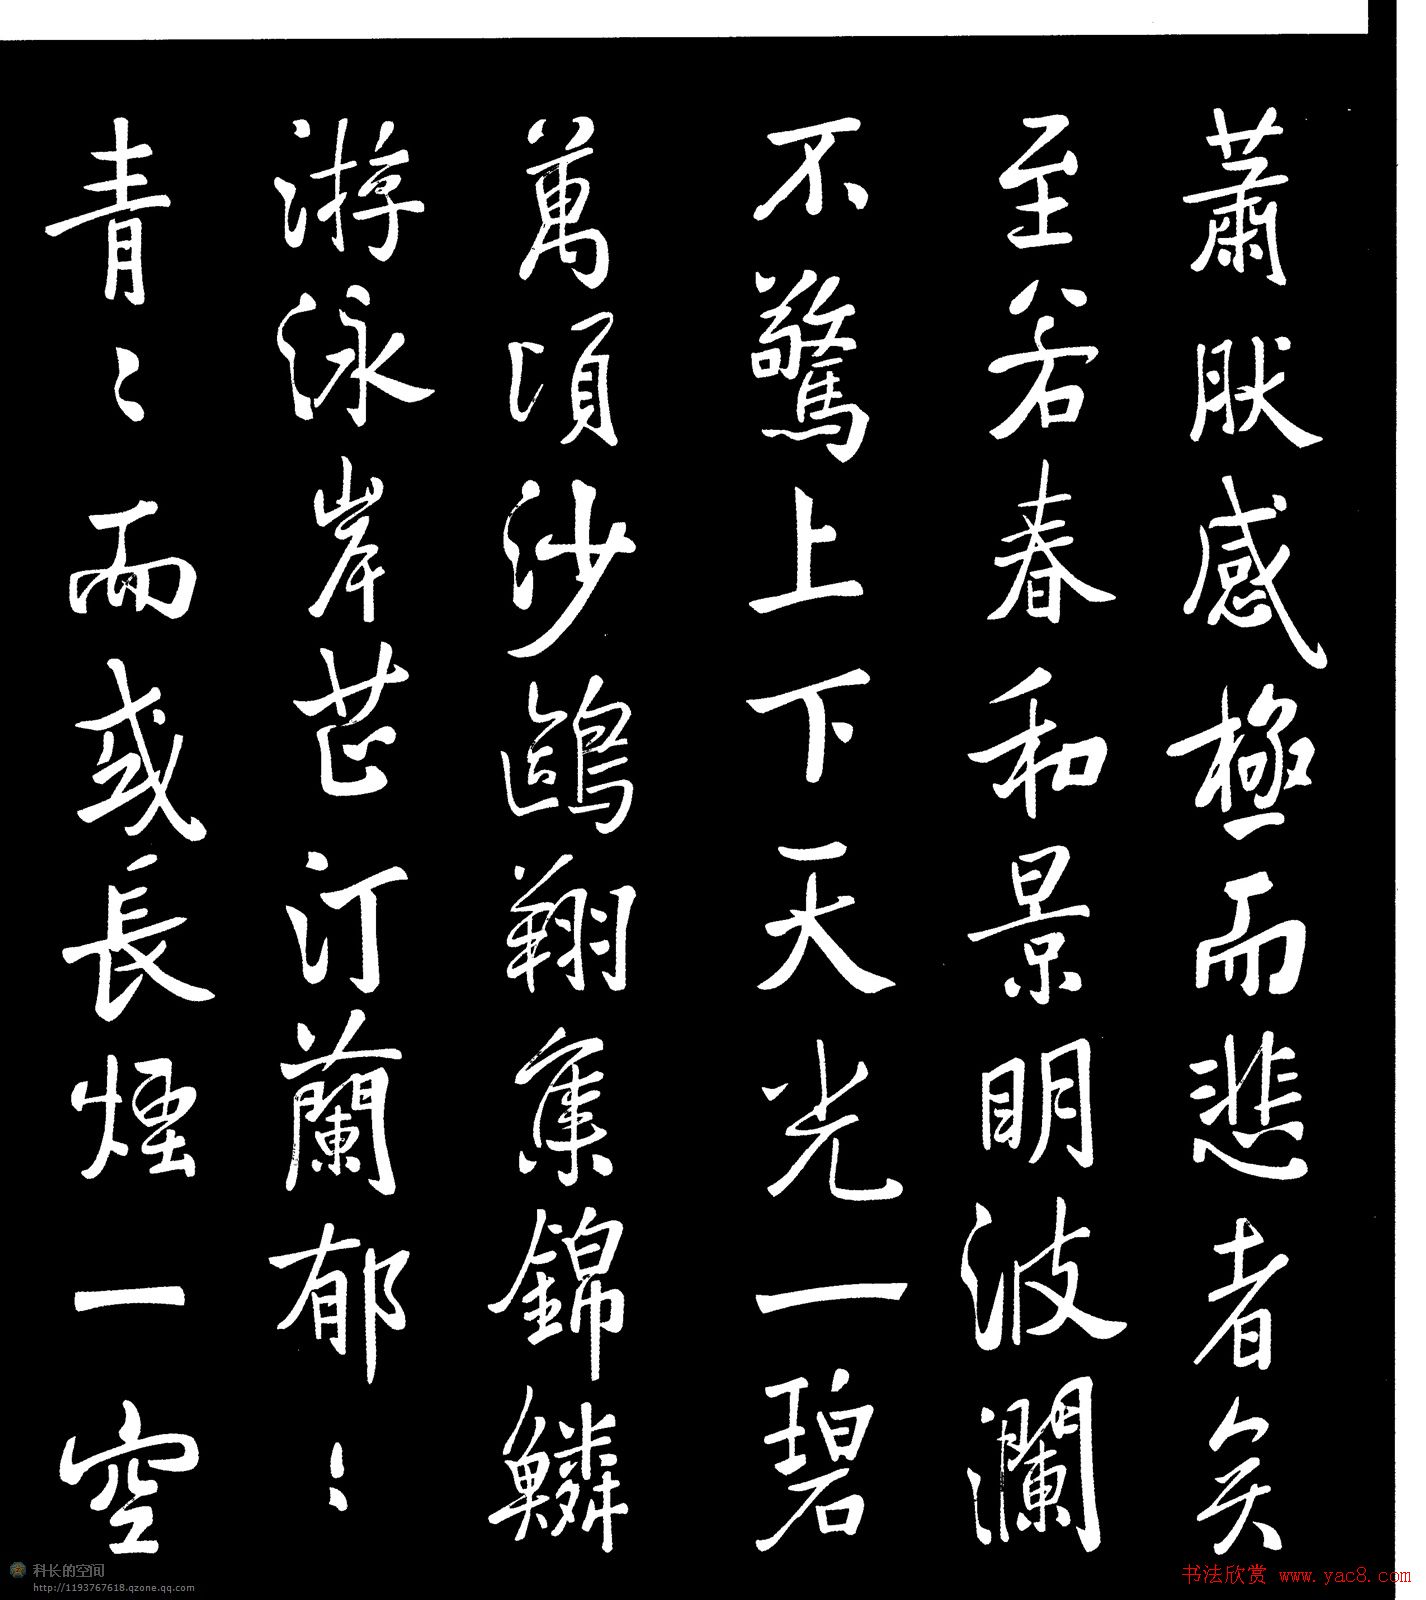 蕭然感極而悲者矣
至若春和景明波瀾
不驚上下天光一碧
萬頃沙鷗翔集錦鱗
游泳岸芷汀蘭郁〻
青〻而或長煙一空
科长的空间
http://1193767618.qzone.qq.com
书法欣赏 www.yac8.com